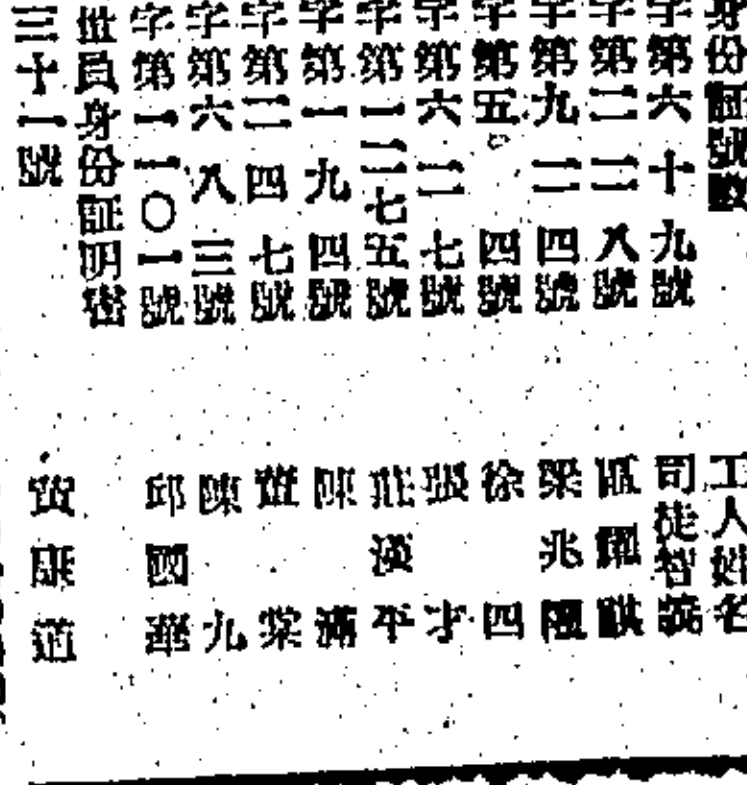 身份証號數
字第六十九號
字第二二八號
字第九二四號
字第五四號
字第六二七號
字第一二七五號
字第一九四號
字第二四七號
字第六八三號
字第一一〇一號
員身份証明
三十一號
工人姓名
司徒智
梁兆
徐四
張才
莊漢平
陳滿
棠
陳九
邱國華
康道